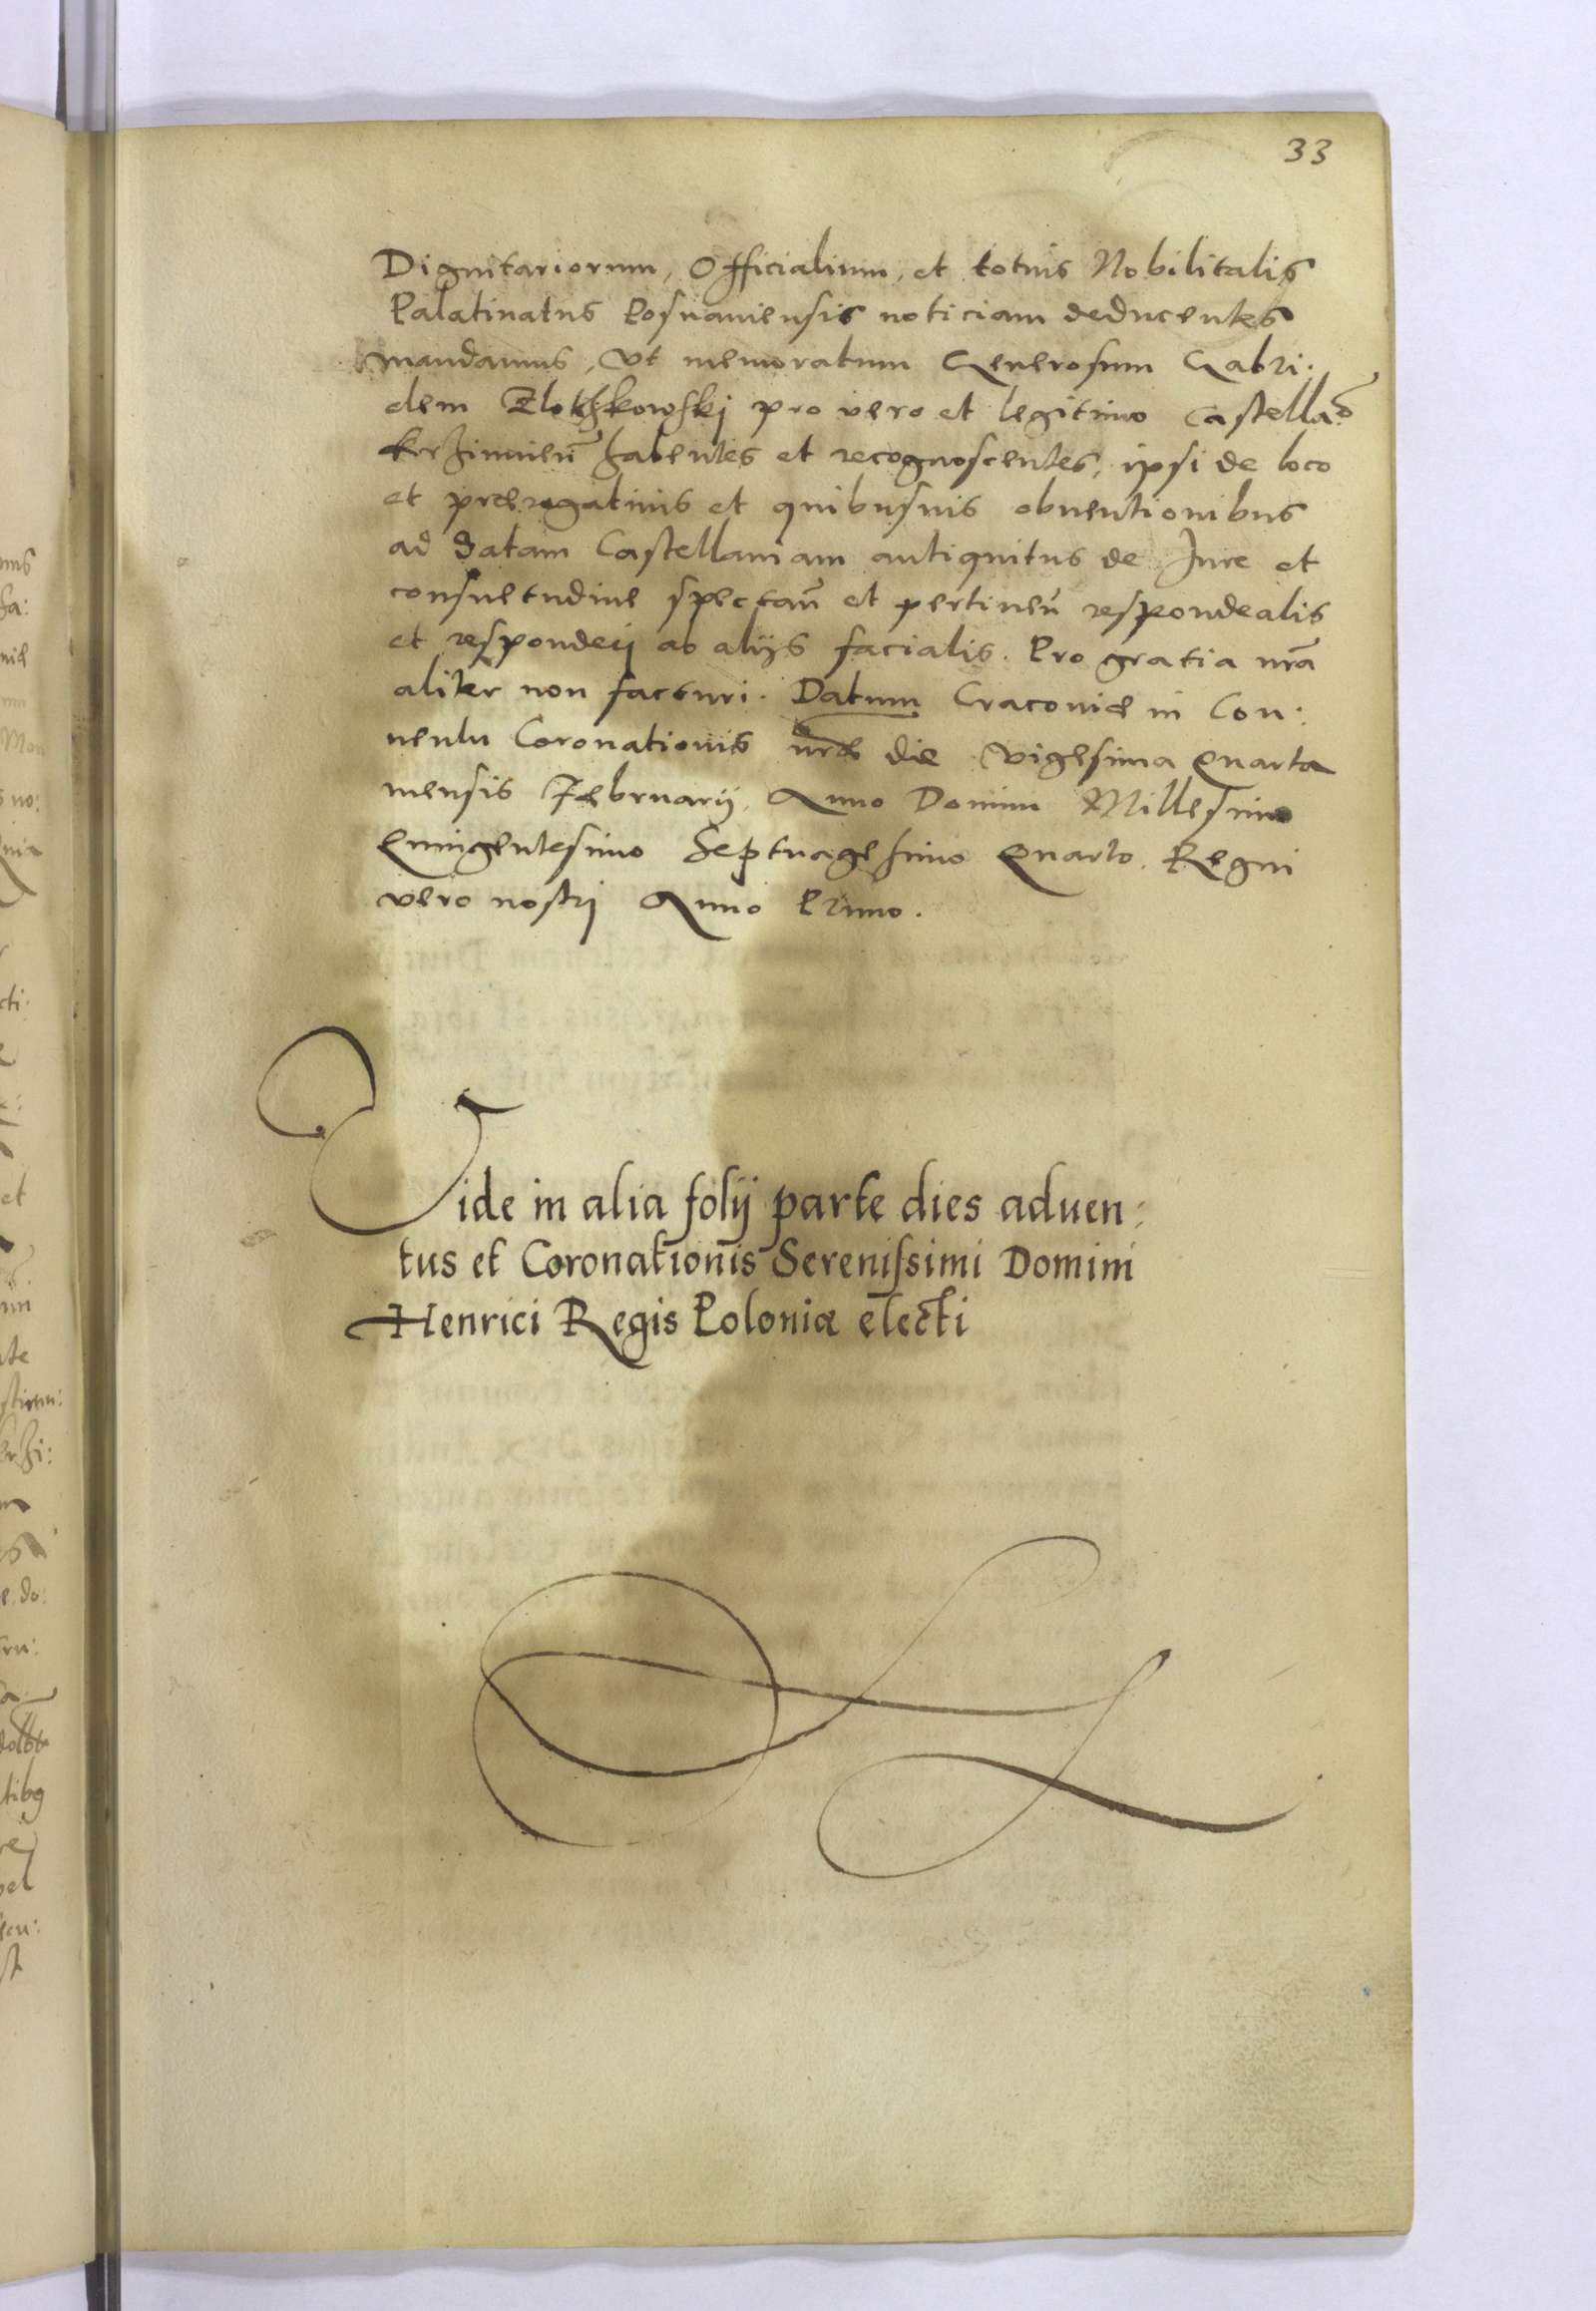 33
Dignitariorum, Officialium, et totius Nobilitatis
Palatinatus Posnaniensis noticiam deducentes
mandamus, vt memoratum Generosum Gabri:
elem Zlothkowskj pro vero et legitimo Castellāo
krzivinen̄ habentes et recognoscentes, ipsi de loco
et prerogatiuis et quibusuis obuentionibus
ad datam Castellaniam antiquitus de Iure et
consuetudine spectan̄ et pertinen̄ respondeatis
et responderj ab alijs faciatis. Pro gratia nr̄a
aliter non facturi. Datum Cracouiæ in Con:
uentu Coronationis nr̄æ die vigesima Quarta
mensis Februarij, Anno Domini Millesimo
Quingentesimo Septuagesimo Quarto. Regni
vero nostrj Anno Primo.
Vide in alia folij parte dies aduen:
tus et Coronationis Serenissimi Domini
Henrici Regis Poloniæ electi